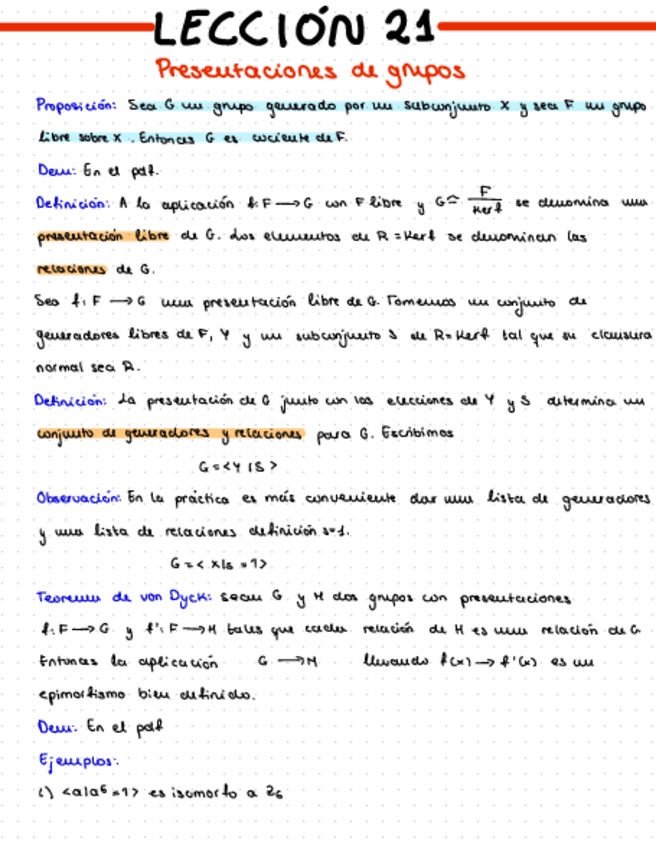 LECCIÓN 21
Presentaciones de grupos
Proposición: Sea G un grupo generado por un subconjunto X y sea F un grupo
libre sobre X. Entonces G es cociente de F.
Dem: En el pdf.
Definición: A la aplicación f: F → G con F libre y G ≃ F/Kerf se denomina una
presentación libre de G. Los elementos de R = Kerf se denominan las
relaciones de G.
Sea f: F → G una presentación libre de G. Tomemos un conjunto de
generadores libres de F, Y y un subconjunto S de R = Kerf tal que su clausura
normal sea R.
Definición: La presentación de G junto con las elecciones de Y y S determina un
conjunto de generadores y relaciones para G. Escribimos
G = <Y | S>
Observación: En la práctica es más conveniente dar una lista de generadores
y una lista de relaciones definición s=1.
G = < X | s = 1>
Teorema de von Dyck: Sean G y H dos grupos con presentaciones
f: F → G y f': F → H tales que cada relación de H es una relación de G.
Entonces la aplicación G → H llevando f(x) → f'(x) es un
epimorfismo bien definido.
Dem: En el pdf
Ejemplos:
i) <a|a⁶ = 1> es isomorfo a Z₆